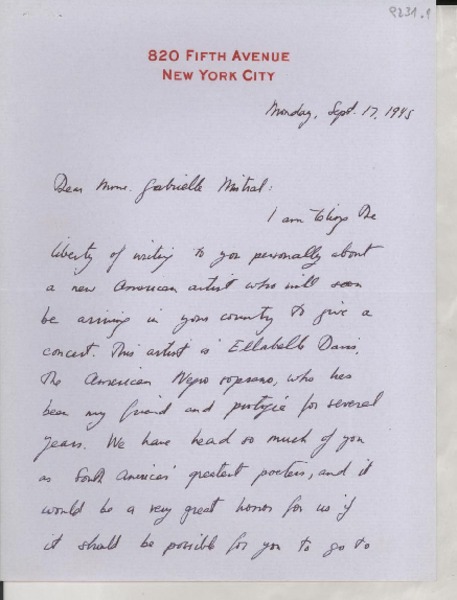 9231.1
820 FIFTH AVENUE
NEW YORK CITY
Monday, Sept. 17, 1945
Dear Mme. Gabrielle Mistral:
I am taking the
liberty of writing to you personally about
a new American artist who will soon
be arriving in your country to give a
concert. This artist is Ellabelle Davis,
the American Negro soprano, who has
been my friend and protegée for several
years. We have heard so much of you
as South America's greatest poetess, and it
would be a very great honor for us if
it should be possible for you to go to